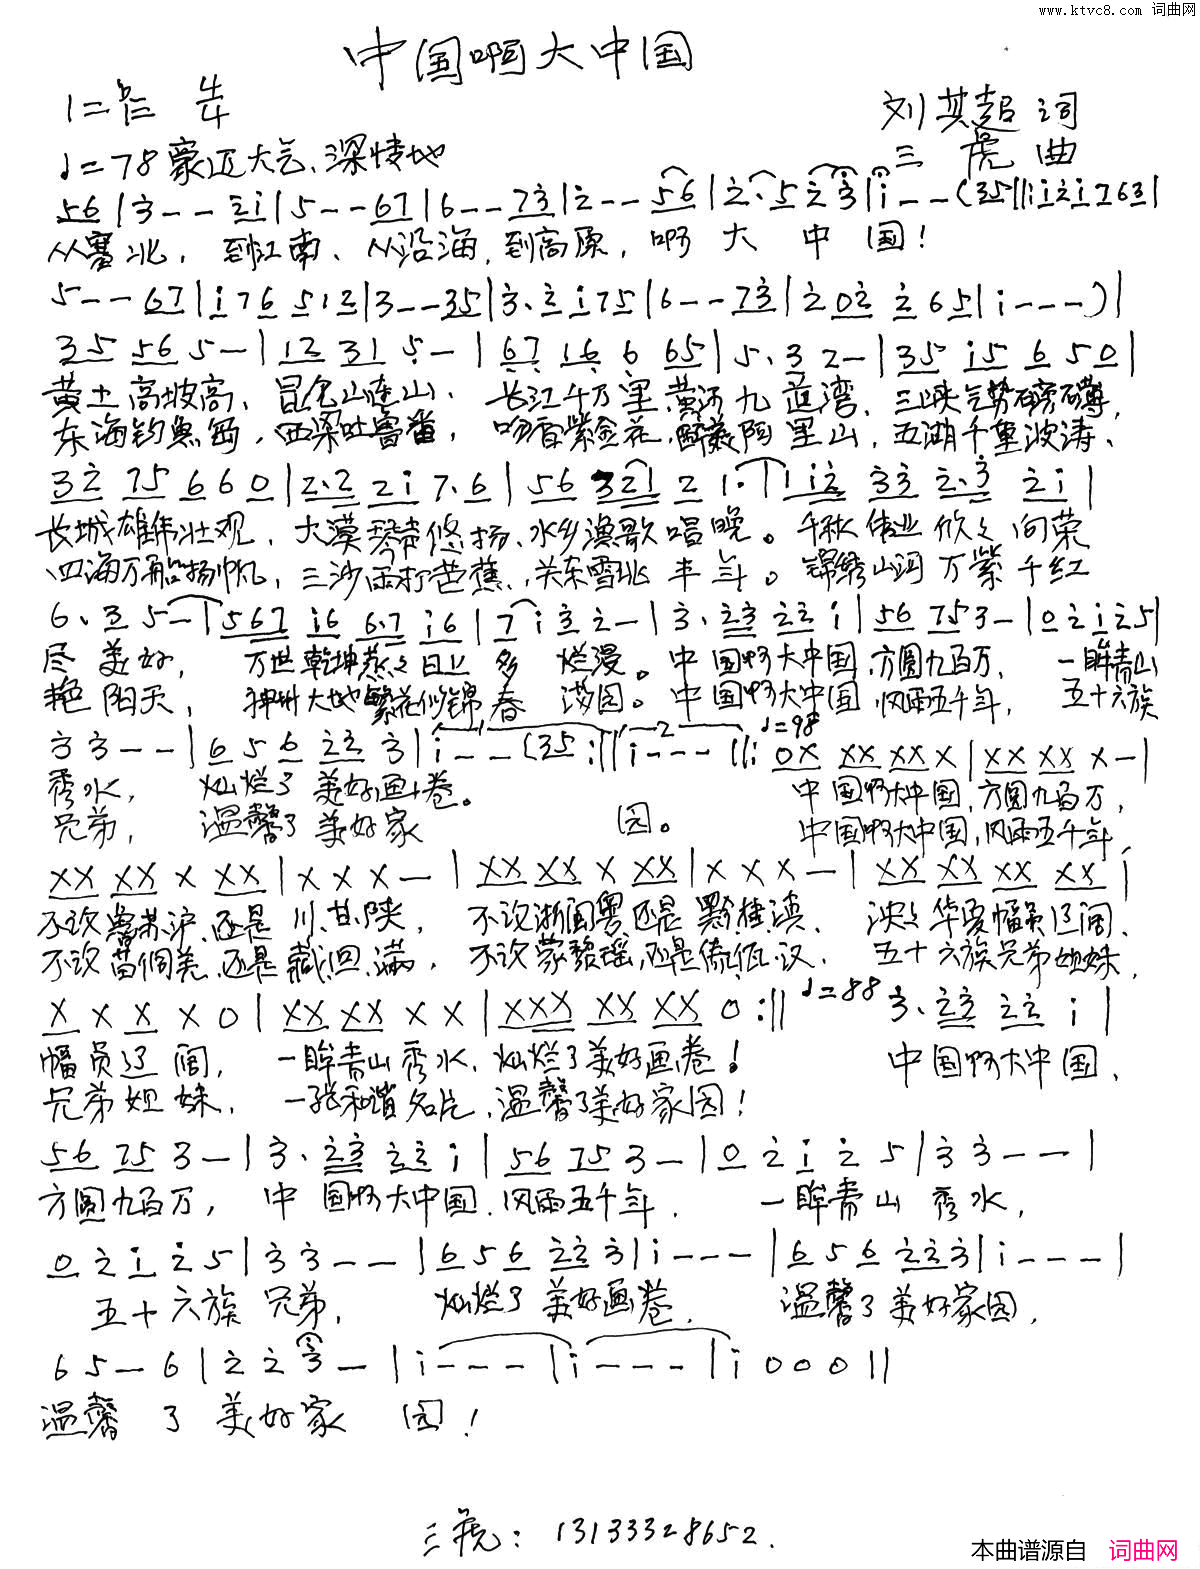 www.ktvc8.com 词曲网
中国啊大中国
1=♭E 4/4
刘其超 词
♩=78 豪迈大气、深情地
三虎 曲
56|3--21|5--67|6--73|2--56|2·523|1--(35||121763|
从塞北，到江南、从沿海，到高原，啊大中国！
5--67|176 512|3--35|3·2175|6--73|202 265|1---)|
35 56 5-|12 31 5-|67 16 6 65|5·3 2-|35 15 6 50|
黄土高坡高、昆仑山连山、长江千万里，黄河九道湾、三峡气势磅礴，
东海钓鱼岛，西梁吐鲁番，吻香紫金花，醉美阿里山，五湖千里波涛、
32 75 6 6 0|2·2 21 7·6|56 321 2 1·1|12 33 2·3 21|
长城雄伟壮观，大漠琴带悠扬、水乡渔歌唱晚。千秋伟业欣欣向荣
四海万船扬帆，三沙雨打芭蕉，关东雪兆丰年。锦绣山河万紫千红
6·3 5-|567 16 6·7 16|7132-|3·23 22 1|56 753-|02125|
尽美好，万世乾坤蒸蒸日上多烂漫。中国啊大中国，方圆九百万，一眸青山
艳阳天，神州大地繁花似锦春满园。中国啊大中国，风雨五千年，五十六族
33--|656 22 3|1--(35:||1---||:♩=98 0X XX XX X|XX XX X-|
秀水，灿烂了美好画卷。中国啊大中国，方圆九百万，
兄弟，温馨了美好家园。中国啊大中国，风雨五千年，
XX XX X XX|X X X-|XX XX X XX|X X X-|XX XX XX XX|
不议鲁苏沪、还是川、甘、陕，不议浙闽粤还是黔桂滇，泱泱华夏幅员辽阔、
不议苗侗羌，还是藏、回、满，不议蒙黎瑶，还是傣、佤、汉、五十六族兄弟姐妹，
X X X X 0|XX XX X X|XXX XX XX 0:||♩=88 3·23 22 1|
幅员辽阔，一眸青山秀水，灿烂了美好画卷！中国啊大中国，
兄弟姐妹，一张和谐名片，温馨了美好家园！
56 753-|3·23 22 1|56 753-|02125|33--|
方圆九百万，中国啊大中国，风雨五千年，一眸青山秀水，
02125|33--|656 223|1---|656 223|1---|
五十六族兄弟，灿烂了美好画卷，温馨了美好家园，
65-6|223-|1---|1---|1000||
温馨了美好家园！
三虎：13133328652.
本曲谱源自 词曲网